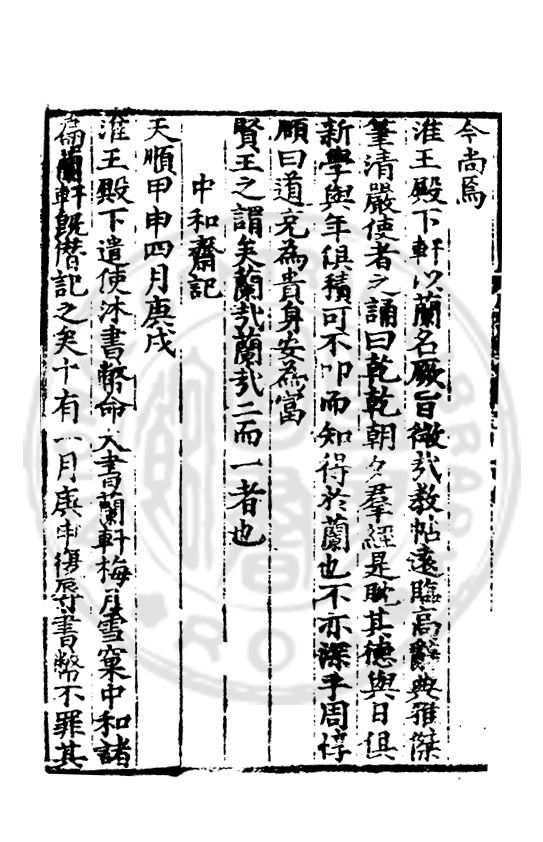 今尚焉
淮王殿下軒以蘭名厥旨微哉教帖遠臨高辭典雅傑
筆清嚴使者之誦曰乾乾朝夕羣經是耽其德與日俱
新學與年俱積可不叩而知得於蘭也不亦深乎周惇
頤曰道充為貴身安為富
賢王之謂矣蘭哉蘭哉二而一者也
中和齋記
天順甲申四月庚戌
淮王殿下遣使沐書幣命大書蘭軒梅月雪窠中和諸
扁蘭軒既僣記之矣十有一月庚申復辱書幣不罪其